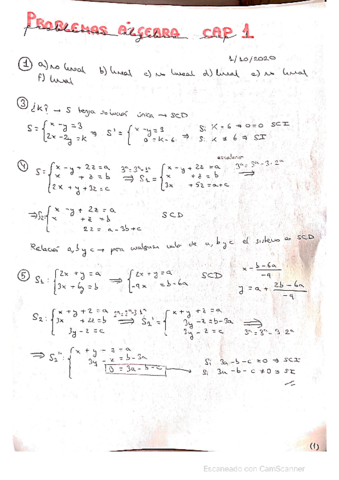 PROBLEMAS ÁLGEBRA CAP 1
1/10/2020
① a) no lineal b) lineal c) no lineal d) lineal e) no lineal
f) lineal
③ ¿k? → S tenga solución única → SCD
S = { x - y = 3 ; 2x - 2y = k ⇒ S' = { x - y = 3 ; 0 = k - 6 ⇒ Si k = 6 → 0 = 0 SCI
Si k ≠ 6 → SI
escalono
④ S = { x - y + 2z = a ; x + z = b ; 2x + y + 3z = c
S₂ = { x - y + 2z = a ; x + z = b ; 3x + 5z = a + c
⇒ { x - y + 2z = a ; x + z = b ; 2z = a - 3b + c SCD
Relación a, b y c → para cualquier valor de a, b y c el sistema es SCD
⑤ S₁: { 2x + y = a ; 3x + 6y = b ⇒ { 2x + y = a ; -9x = b - 6a SCD
x = b - 6a / -9
y = a + 2b - 6a / -9
S₂: { x + y + z = a ; 3x + z = b ; 3y - z = c
⇒ { x + y - z = a ; 3y - z = b - 3a ; 0 = 3a - b - c
Si 3a - b - c = 0 → SCI
Si 3a - b - c ≠ 0 → SI
(1)
Escaneado con CamScanner